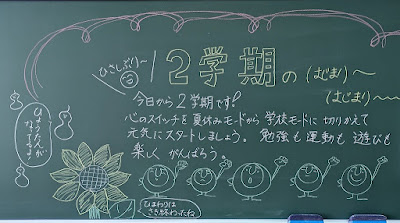 ひさしぶり〜
2学期の(はじまり)〜
(はじまり)〜
今日から2学期です!
心のスイッチを夏休みモードから学校モードに切りかえて
元気にスタートしましょう。勉強も運動も遊びも
楽しくがんばろう。
ひょうたんが
なってるよ
ひまわりは
さき終わったね